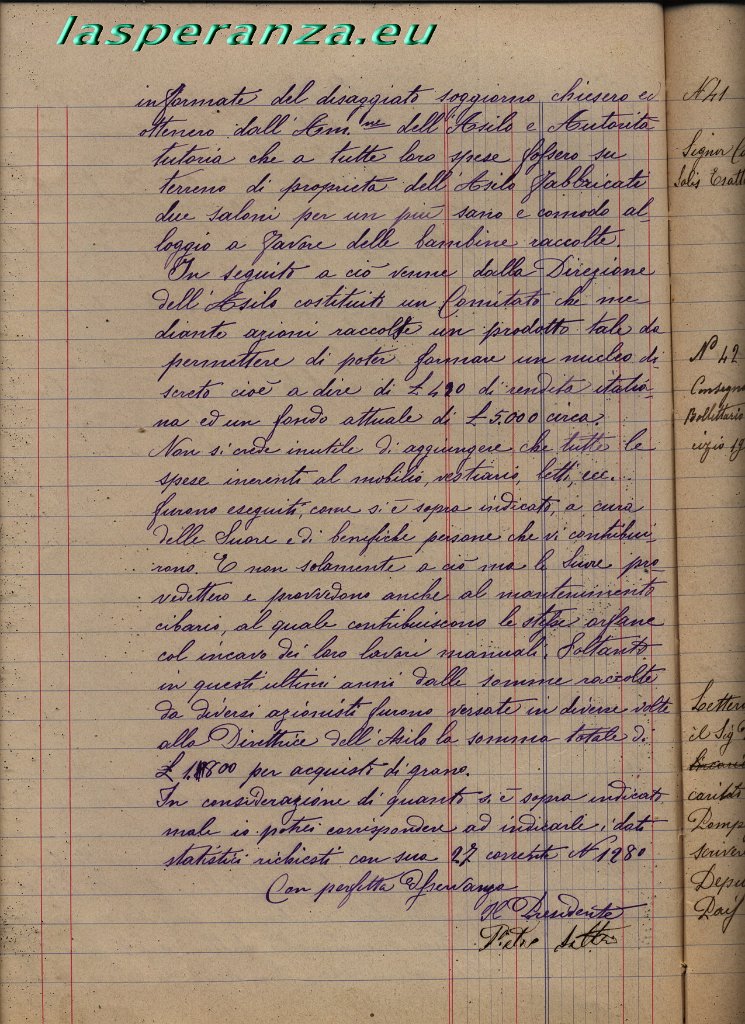 lasperanza.eu
informate del disaggiato soggiorno chiesero ed
ottenero dall'Am.ne dell'Asilo e Autorità
tutoria che a tutte loro spese fossero su
terreno di proprietà dell'Asilo fabbricati
due saloni per un più sano e comodo al-
loggio a favore delle bambine raccolte.
In seguito a ciò venne dalla Direzione
dell'Asilo costituito un Comitato che me
diante azioni raccolse un prodotto tale da
permettere di poter formare un nucleo di
screto cioè a dire di £ 420 di rendita italia-
na ed un fondo attuale di £ 5.000 circa.
Non si crede inutile di aggiungere che tutte le
spese inerenti al mobilio, vestiario, letti, ecc...
furono eseguiti, come si è sopra indicato, a cura
delle Suore e di benefiche persone che vi contribui-
rono. E non solamente a ciò ma le Suore pro-
vedettero e provvedono anche al mantenimento
cibario, al quale contribuiscono le stesse orfane
col incavo dei loro lavori manuali. Soltanto
in questi ultimi anni dalle somme raccolte
da diversi azionisti furono versate in diverse volte
alla Direttrice dell'Asilo la somma totale di
£ 1.800 per acquisto di grano.
In considerazione di quanto si è sopra indicato
male io potrei corrispondere ad indicarle i dati
statistici richiesti con sua 27 corrente N 1980
Con perfetta Osservanza
Il Presidente
N 41
Signor
Solis Esatt
N° 42
Consegna
Bollettario
Lettera
il Sig
caritat
Pomp
scrivere
Depu